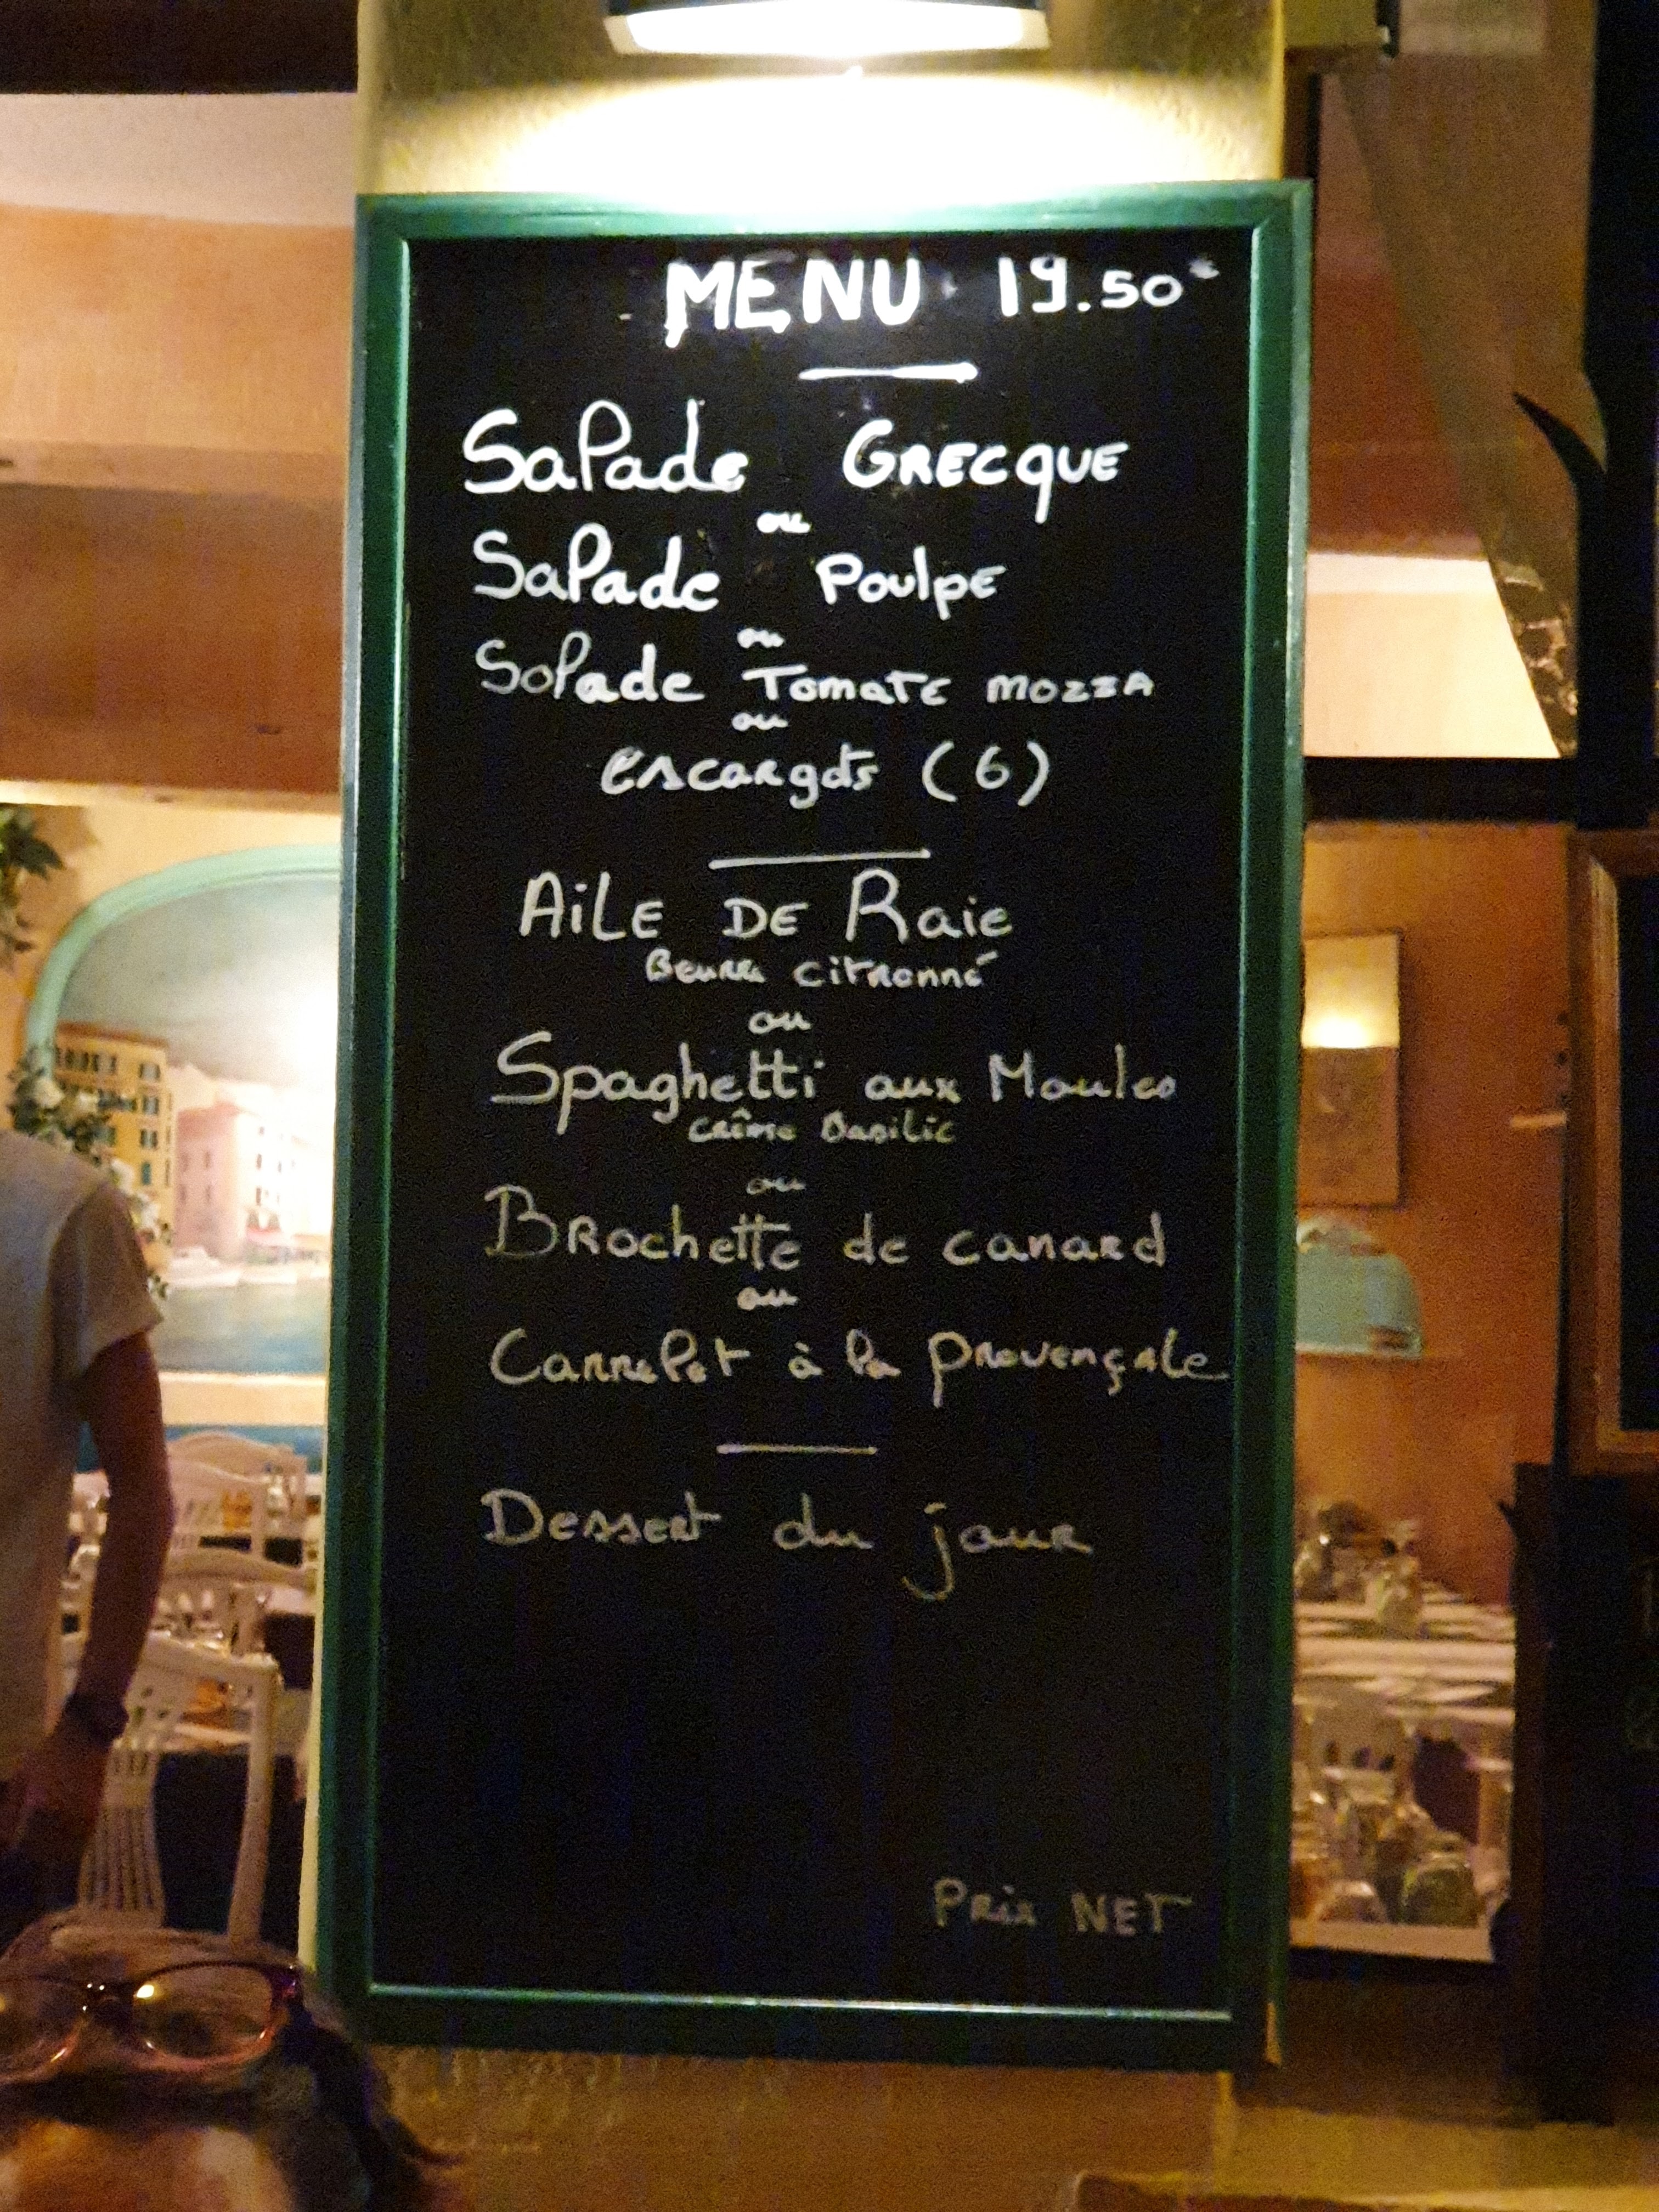 MENU 19.50€
Salade GRECQUE
ou
Salade Poulpe
ou
Salade Tomate MOZZA
ou
escargots (6)
AiLE DE Raie
Beurre citronné
ou
Spaghetti aux Moules
crème Basilic
ou
BROchette de canard
ou
Carrelet à la provençale
Dessert du jour
Prix NET